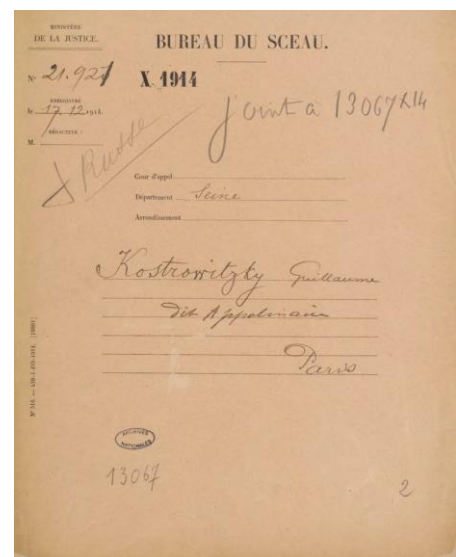 MINISTÈRE
DE LA JUSTICE.
BUREAU DU SCEAU.
N° 21.927
X 1914
ENREGISTRÉ
le 17.12.1914.
joint a 13067 X 14
RÉDACTEUR :
M.
Russe
Cour d'appel
Département Seine
Arrondissement
Kostrowitzky Guillaume
dit Appolinaire
Paris
ARCHIVES
NATIONALES
13067
2